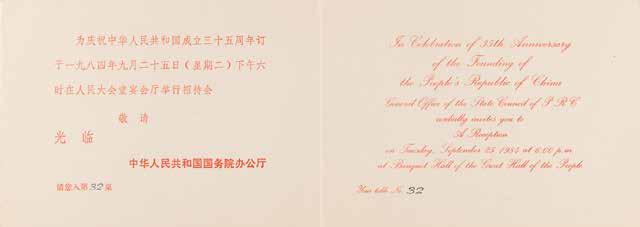 为庆祝中华人民共和国成立三十五周年订
于一九八四年九月二十五日(星期二)下午六
时在人民大会堂宴会厅举行招待会
敬请
光临
中华人民共和国国务院办公厅
请您入第32桌
In Celebration of 35th Anniversary
of the Founding of
the People's Republic of China
General Office of the State Council of P R C
cordially invites you to
A Reception
on Tuesday, September 25, 1984 at 6:00 p.m.
at Banquet Hall of the Great Hall of the People
Your table No. 32